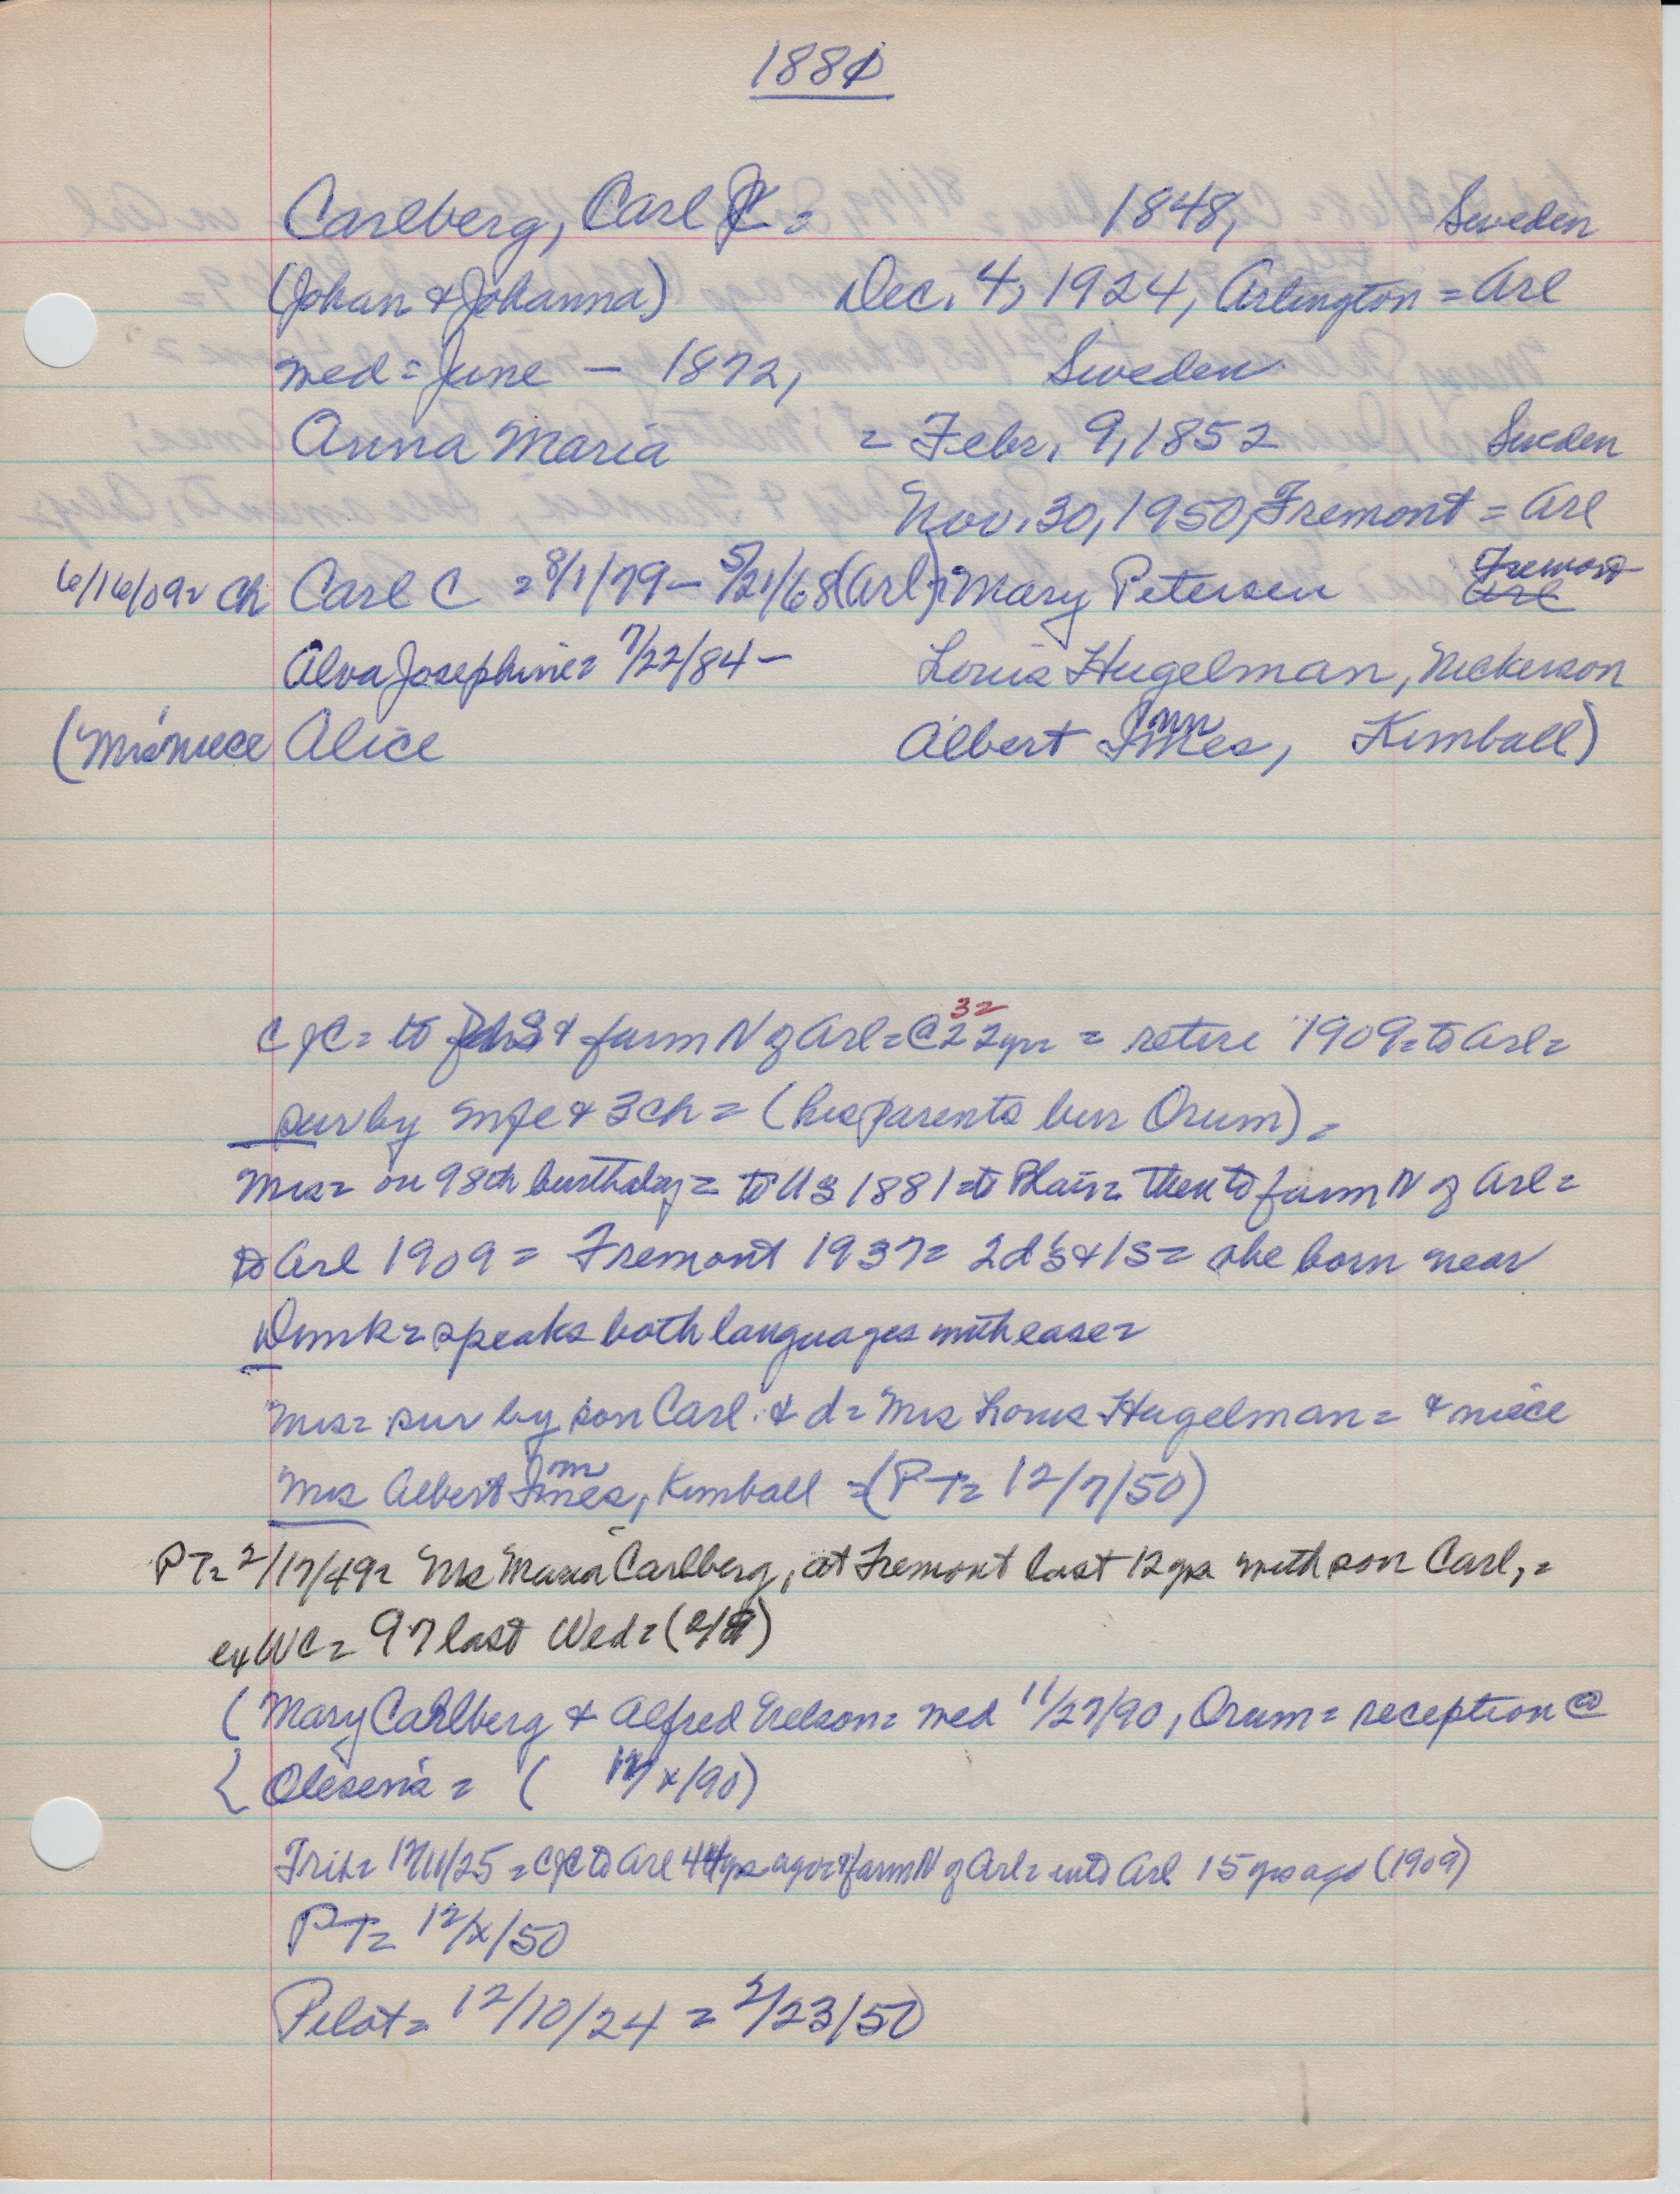 1880
Carlberg, Carl J = 1848, Sweden
(Johan & Johanna) Dec. 4, 1924, Arlington = Arl
wed = June – 1872, Sweden
Anna Maria = Febr. 9, 1852 Sweden
Nov. 30, 1950, Fremont = Arl
6/16/09 = Ch Carl C = 8/1/79 – 5/21/68 (Arl) = Mary Petersen Fremont Arl
Alva Josephine = 7/22/84 – Louis Hugelman, Nickerson
(Mrs' niece Alice Albert Immes, Kimball)
CJC = to & farm N of Arl = @ 32 yrs = retire 1909 = to Arl =
sur by wife & 3 ch = (his parents bur Orum) =
Mrs = on 98th birthday = to US 1881 = to Blair = then to farm N of Arl =
to Arl 1909 = Fremont 1937 = 2 d's & 1 s = she born near
Dmrk = speaks both languages with ease =
Mrs = sur by son Carl & d = Mrs Louis Hugelman = & niece
Mrs Albert Immes, Kimball = (PT = 12/7/50)
PT = 2/17/49 = Mrs Maria Carlberg, at Fremont last 12 yrs with son Carl, =
ex WC = 97 last Wed = (2/9)
(Mary Carlberg & Alfred Nelson = wed 11/27/90, Orum = reception @
Olesens' = ( 12/x/90)
Trib = 12/11/25 = CJC to Arl 44 yrs ago = & farm N of Arl = into Arl 15 yrs ago (1909)
PT = 12/x/50
Pilot = 12/10/24 = 2/23/50